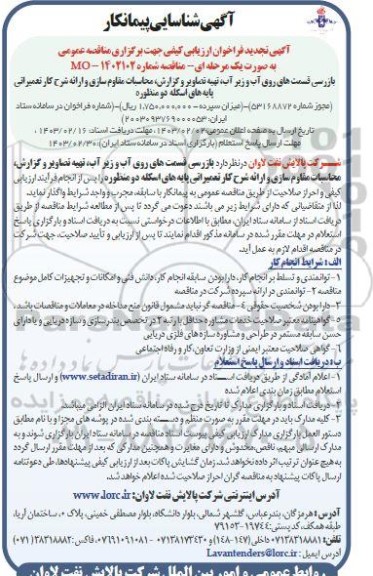 آگهی شناسایی پیمانکار
آگهی تجدید فراخوان ارزیابی کیفی جهت برگزاری مناقصه عمومی
به صورت یک مرحله ای – مناقصه شماره MO – ۱۴۰۲۱۰۲
بازرسی قسمت های روی آب و زیر آب، تهیه تصاویر و گزارش، محاسبات مقاوم سازی و ارائه شرح کار تعمیراتی
پایه های اسکله دو منظوره
(مجوز شماره ۵۳۱۶۸۸۷۲)-(میزان سپرده - ۱,۷۵۰,۰۰۰,۰۰۰ ریال)-(شماره فراخوان در سامانه ستاد
ایران:
تاریخ ارسال به صفحه اعلان عمومی: ۱۴۰۳/۰۲/۰۲، مهلت دریافت اسناد: ۱۴۰۳/۰۲/۱۶،
مهلت ارسال پاسخ استعلام (بارگزاری اسناد در سامانه ستاد ایران): ۱۴۰۳/۰۲/۳۰
شرکت پالایش نفت لاوان در نظر دارد بازرسی قسمت های روی آب و زیر آب، تهیه تصاویر و گزارش،
محاسبات مقاوم سازی و ارائه شرح کار تعمیراتی پایه های اسکله دو منظوره را پس از انجام فرآیند ارزیابی
کیفی و احراز صلاحیت از طریق مناقصه عمومی به پیمانکار با سابقه، مجرب و واجد شرایط واگذار نماید.
لذا از متقاضیانی که دارای شرایط زیر می باشند دعوت می گردد تا پس از مطالعه شرایط مناقصه از طریق
دریافت اسناد از سامانه ستاد ایران، مطابق با اطلاعات درخواستی نسبت به دریافت اسناد و بارگزاری پاسخ
استعلام در مهلت مقرر شده در سامانه مذکور اقدام نمایند تا پس از ارزیابی و تأیید صلاحیت، جهت شرکت
در مناقصه اقدام لازم به عمل آید.
الف: شرایط انجام کار
۱- توانمندی و تسلط بر انجام کار، دارا بودن سابقه انجام کار، دانش فنی و امکانات و تجهیزات کامل موضوع
مناقصه ۲- توانمندی در ارائه سپرده شرکت در مناقصه
۳- دارا بودن شخصیت حقوقی ۴- مناقصه گر نباید مشمول قانون منع مداخله در معاملات و مناقصات باشد.
۵- گواهینامه معتبر صلاحیت خدمات مشاوره حداقل با رتبه ۲ در تخصص بندرسازی و سازه دریایی و یا دارای
حسن سابقه مستمر در طراحی و مشاوره سازه های فلزی دریایی
۶- گواهی صلاحیت معتبر ایمنی از وزارت تعاون، کار و رفاه اجتماعی
ب: دریافت اسناد و ارسال پاسخ استعلام
۱- اعلام آمادگی از طریق دریافت اسناد در سامانه ستاد ایران (www.setadiran.ir) و ارسال پاسخ
استعلام مطابق زمان بندی اعلام شده
۲- دریافت اسناد و بارگزاری مدارک تا تاریخ درج شده در سامانه ستاد ایران الزامی میباشد
۳- کلیه مدارک باید در مهلت مقرر به صورت منظم و دسته بندی شده در پوشه های مجزا و با نام مطابق
دستور العمل بارگزاری مدارک ارزیابی کیفی پیوست اسناد مناقصه در سامانه ستاد ایران بارگزاری شوند و به
مدارک ارسالی مبهم، ناقص، مخدوش و دارای مغایرت و همچنین مدارکی که بعد از مهلت مقرر ارسال گردد
به هیچ عنوان ترتیب اثر داده نخواهد شد. زمان گشایش پاکات بعد از ارزیابی کیفی پیشنهادها، طی دعوتنامه
ارسال پاکات پیشنهاد به مناقصه گران احراز صلاحیت شده اعلام خواهد شد.
آدرس اینترنتی شرکت پالایش نفت لاوان: www.lorc.ir
آدرس: هرمزگان، بندرعباس، گلشهر شمالی، بلوار دانشگاه، بلوار مصطفی خمینی، پلاک ۰، ساختمان آریا،
طبقه همکف، کد پستی:
تلفن: ۰۷۱۳۸۲۱۸۸۸۱ داخلی (۱۴۷-۱۴۸) و - ۰۷۱۳۸۱۷۳۴۳۰
آدرس ایمیل: Lavantenders@lorc.ir
روابط عمومی و امور بین الملل شرکت پالایش نفت لاوان